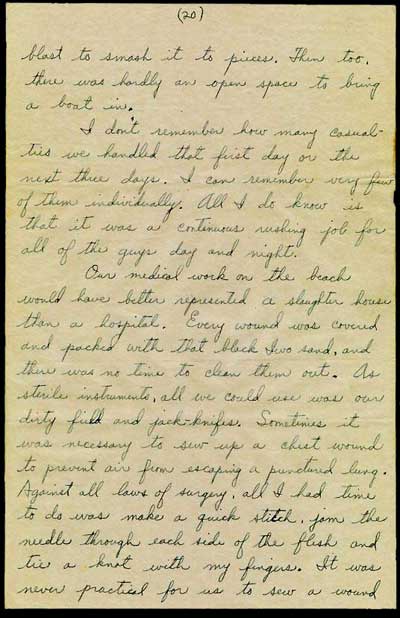 (20)
blast to smash it to pieces. Then too,
there was hardly an open space to bring
a boat in.
I don't remember how many casual-
ties we handled that first day or the
next three days. I can remember very few
of them individually. All I do know is
that it was a continuous rushing job for
all of the guys day and night.
Our medical work on the beach
would have better represented a slaughter house
than a hospital. Every wound was covered
and packed with that black Iwo sand, and
there was no time to clean them out. As
sterile instruments, all we could use was our
dirty field and jack-knifes. Sometimes it
was necessary to sew up a chest wound
to prevent air from escaping a punctured lung.
Against all laws of surgery, all I had time
to do was make a quick stitch, jam the
needle through each side of the flesh and
tie a knot with my fingers. It was
never practical for us to sew a wound